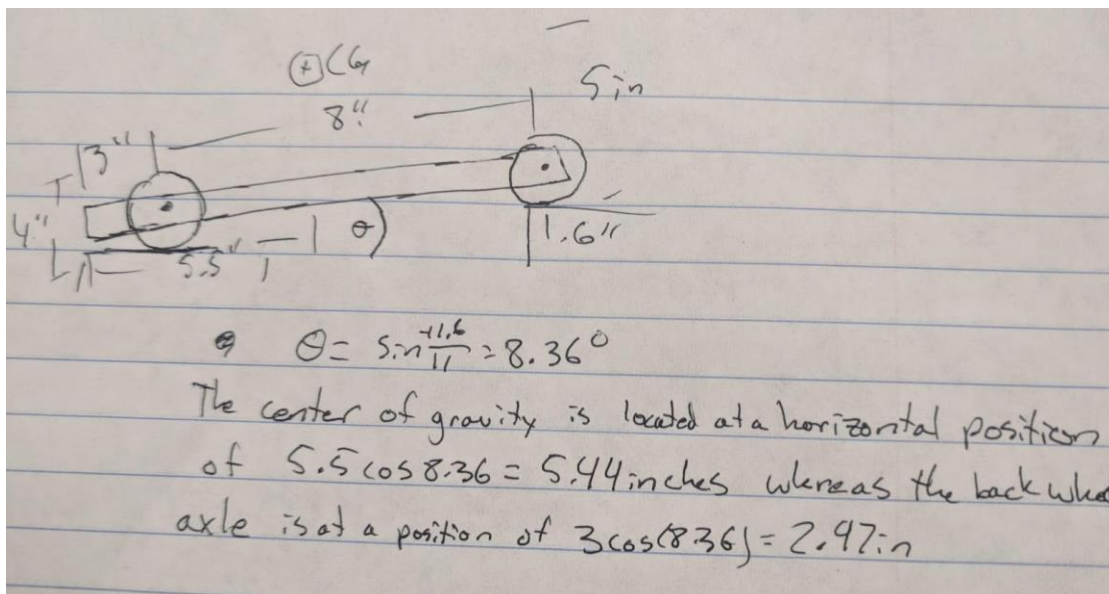 ⊕ CG
8"
5 in
3"
4"
5.5"
θ
1.6"
θ = sin⁻¹ 1.6/11 = 8.36°
The center of gravity is located at a horizontal position
of 5.5 cos 8.36 = 5.44 inches whereas the back
axle is at a position of 3 cos(8.36) = 2.97in